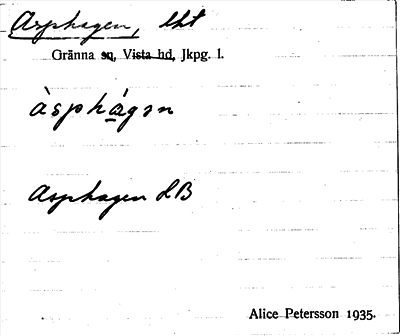 Asphagen, lht
Gränna sn, Vista hd, Jkpg. l.
àsphágən
Asphagen LB
Alice Petersson 1935.